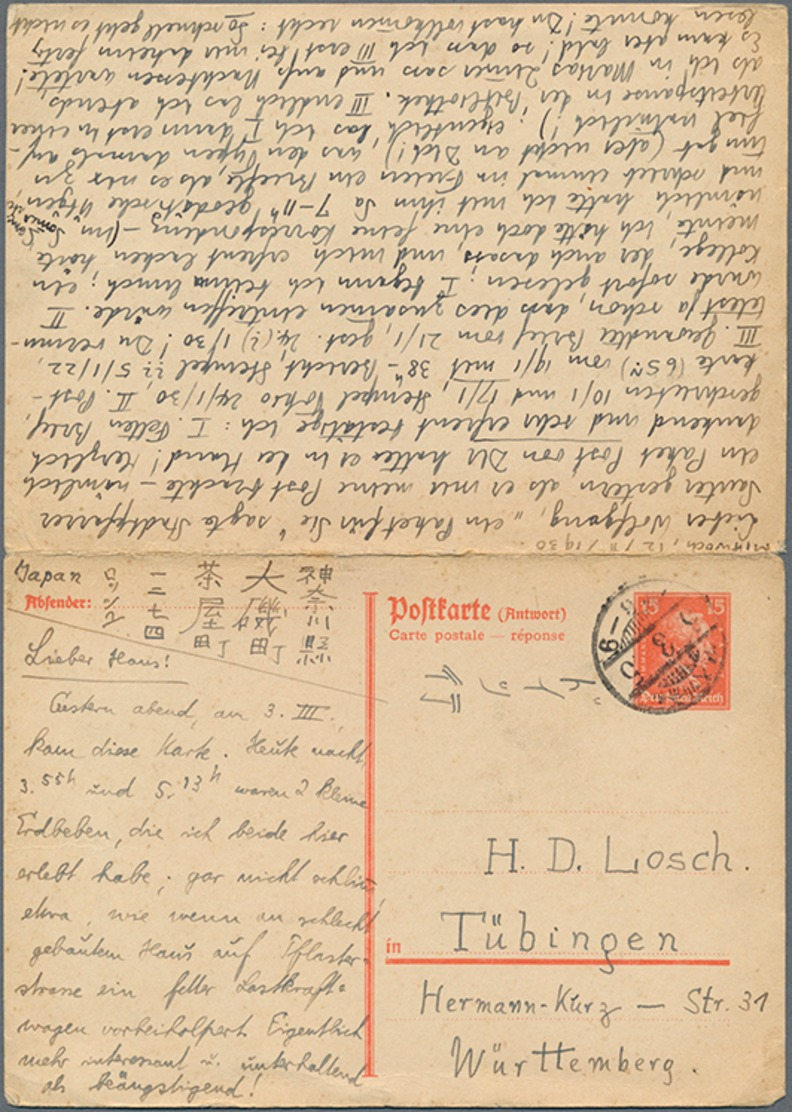 Mittwoch, 12/II/1930.
Lieber Wolfgang, „ein Paket für Sie" sagte Stadtpfarrer
Sauter gestern, als er mir meine Post brachte – nämlich
ein Paket Post von Dir hatte er in der Hand! Herzlich
dankend und sehr erfreut bestätige ich: I. Fetten Brief,
geschrieben 10/1 und 17/1, Stempel Tokio 24/1/30, II. Post-
karte vom 19/1 mit 38h-Bericht, Stempel ?? 5/1/22,
III. Gewandter Brief vom 21/1, gest. 24(?) 1/30! Du vermu-
test ja schon, dass dies zusammen eintreffen würde. II
wurde sofort gelesen; I begann ich beim lunch; ein
Kollege, der auch und mich erfreut lachen hörte
meinte, ich hätte doch eine feine Korrespondenz – (im
nämlich hatte ich mit ihm Sa 7–11h geodätische Übgen,
und schrieb einmal im Freien ein Briefle, als es nix zu
tun gab (aber nicht an Dich!), was den Typen damals auf-
fiel natürlich!); eigentlich, las ich I dann erst in einer
Arbeitspause in der Bibliothek. III endlich las ich abends
als ich in Marias Zimmer sass und aufs Nachtessen wartete!
Es kam aber bald! so dass ich III erst bei mir daheim fertig
lesen konnte! Du hast vollkommen recht: So schnell geht es nicht
Japan
Absender:
神奈川縣
大磯町
茶屋町
一二十四
Lieber Hans!
Gestern abend, am 3. III.,
kam diese Karte. Heute nacht
3.55h und 5.13h waren 2 kleine
Erdbeben, die ich beide hier
erlebt habe; gar nicht schlimm
etwa, wie wenn an schlecht
gebautem Haus auf Pflaster=
strasse ein fetter Lastkraft=
wagen vorbeiholpert. Eigentlich
mehr interessant u. unterhaltend
als beängstigend!
Postkarte (Antwort)
Carte postale — réponse
15 15
Deutsches Reich
ドイツ行
H. D. Losch.
in Tübingen
Hermann-Kurz – Str. 31
Württemberg.